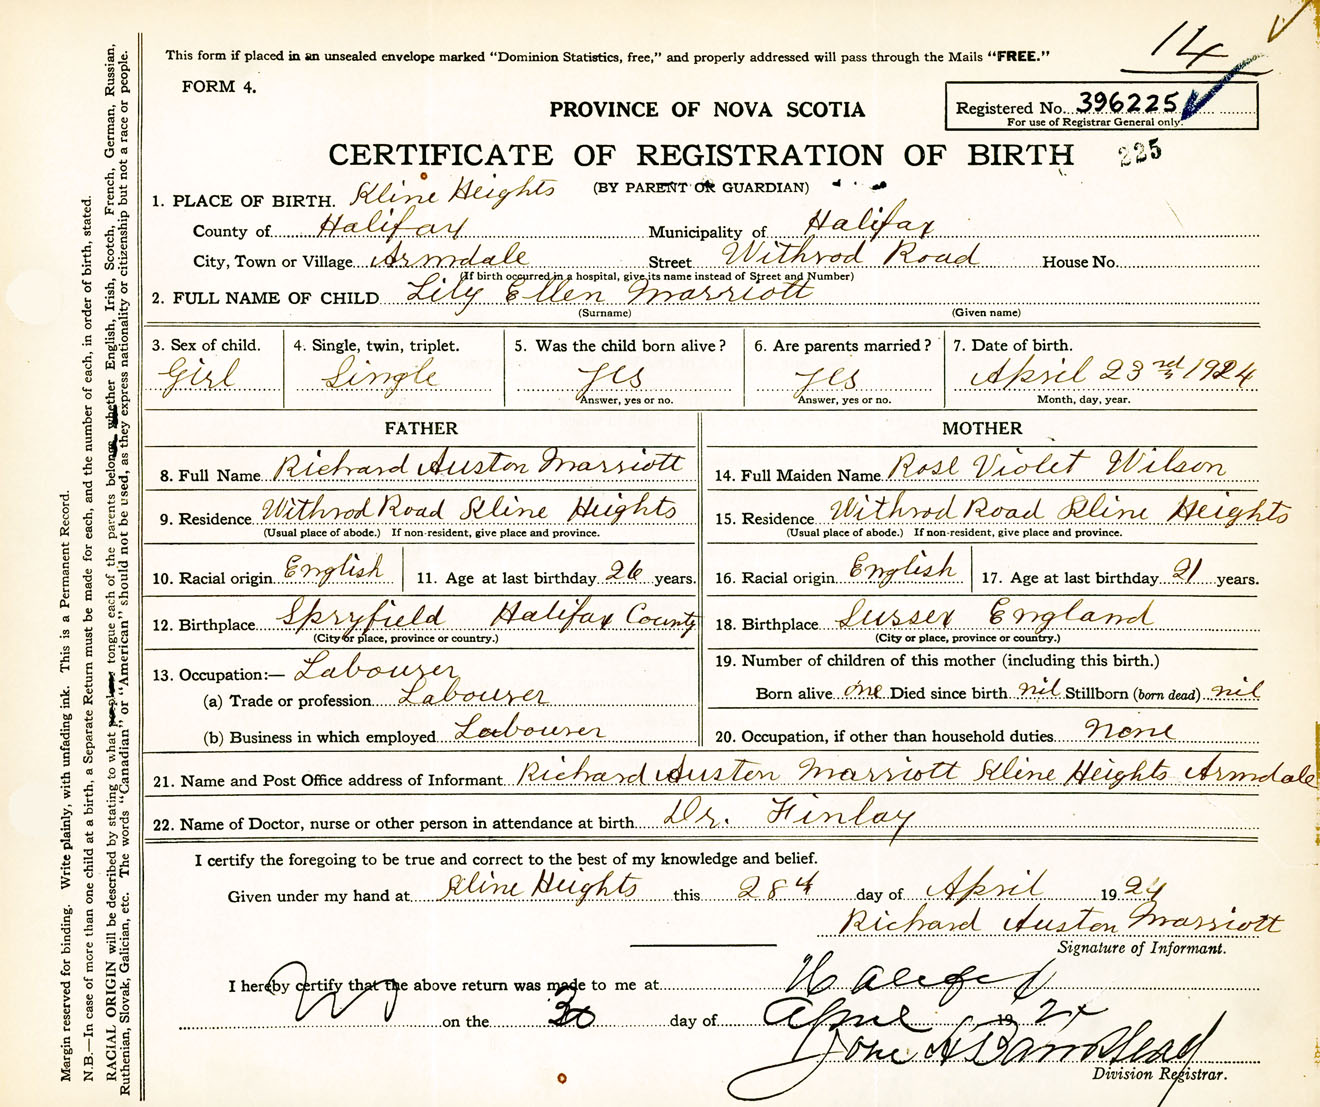 This form if placed in an unsealed envelope marked "Dominion Statistics, free," and properly addressed will pass through the Mails "FREE."
14
FORM 4.
PROVINCE OF NOVA SCOTIA
Registered No. 396225
For use of Registrar General only.
CERTIFICATE OF REGISTRATION OF BIRTH
225
(BY PARENT OR GUARDIAN)
1. PLACE OF BIRTH. Kline Heights
County of Halifax Municipality of Halifax
City, Town or Village Armdale Street Withrod Road House No.
(If birth occurred in a hospital, give its name instead of Street and Number)
2. FULL NAME OF CHILD Lily Ellen Marriott
(Surname) (Given name)
3. Sex of child. 4. Single, twin, triplet. 5. Was the child born alive? 6. Are parents married? 7. Date of birth.
Girl Single yes yes April 23rd 1924
Answer, yes or no. Answer, yes or no. Month, day, year.
FATHER MOTHER
8. Full Name Richard Auston Marriott
9. Residence Withrod Road Kline Heights
(Usual place of abode.) If non-resident, give place and province.
10. Racial origin English 11. Age at last birthday 26 years.
12. Birthplace Spryfield Halifax County
(City or place, province or country.)
13. Occupation:— Labourer
(a) Trade or profession Labourer
(b) Business in which employed Labourer
14. Full Maiden Name Rose Violet Wilson
15. Residence Withrod Road Kline Heights
(Usual place of abode.) If non-resident, give place and province.
16. Racial origin English 17. Age at last birthday 21 years.
18. Birthplace Sussex England
(City or place, province or country.)
19. Number of children of this mother (including this birth.)
Born alive one Died since birth nil Stillborn (born dead) nil
20. Occupation, if other than household duties None
21. Name and Post Office address of Informant Richard Auston Marriott Kline Heights Armdale
22. Name of Doctor, nurse or other person in attendance at birth Dr. Finlay
I certify the foregoing to be true and correct to the best of my knowledge and belief.
Given under my hand at Kline Heights this 28th day of April 1924
Richard Auston Marriott
Signature of Informant.
I hereby certify that the above return was made to me at Halifax
on the 30 day of April 1924
Division Registrar.
Margin reserved for binding. Write plainly, with unfading ink. This is a Permanent Record.
N.B.—In case of more than one child at a birth, a Separate Return must be made for each, and the number of each, in order of birth, stated.
RACIAL ORIGIN will be described by stating to what people or tongue each of the parents belongs, whether English, Irish, Scotch, French, German, Russian,
Ruthenian, Slovak, Galician, etc. The words "Canadian" or "American" should not be used, as they express nationality or citizenship but not a race or people.